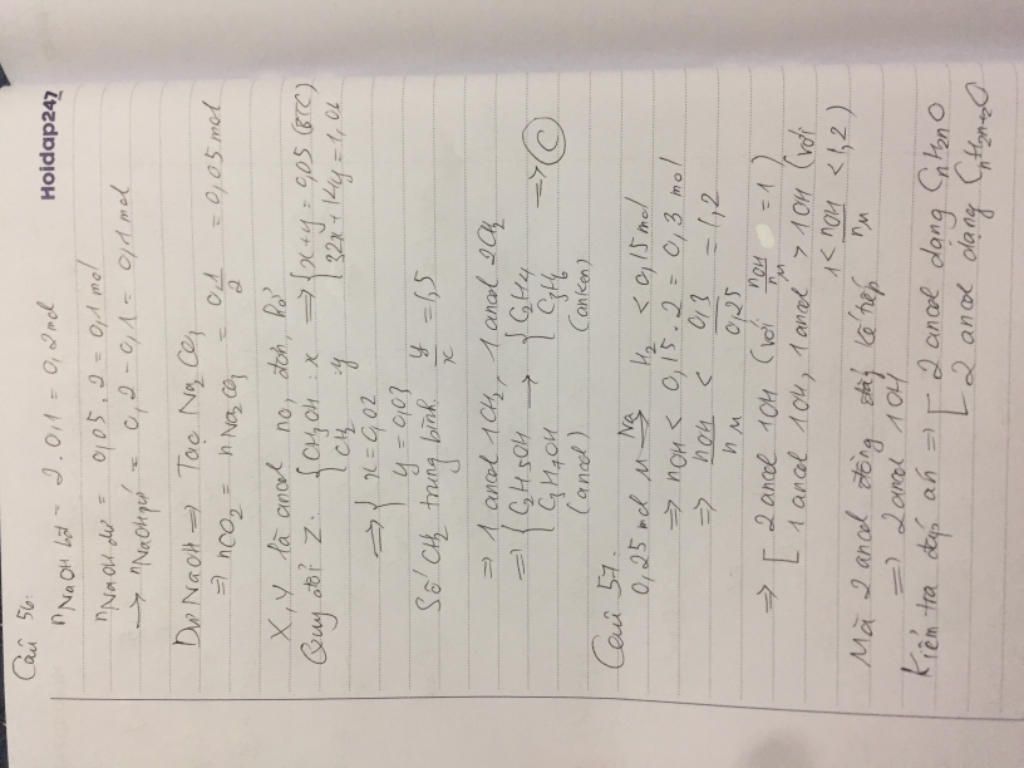 Hoidap247
Câu 56:
nNaOH bđ = 2.0,1 = 0,2 mol
nNaOH dư = 0,05.2 = 0,1 mol
→ nNaOH pứ = 0,2 - 0,1 = 0,1 mol
Dư NaOH ⇒ Tạo Na2CO3
⇒ nCO2 = nNa2CO3 = 0,1/2 = 0,05 mol
X, Y là ancol no, đơn, hở
Quy đổi Z: { CH3OH: x ⇒ { x+y = 0,05 (BTC)
CH2: y 32x + 14y = 1,06
⇒ { x = 0,02
y = 0,03
Số CH2 trung bình y/x = 1,5
⇒ 1 ancol 1CH2, 1 ancol 2CH2
⇒ { C2H5OH → { C2H4 ⇒ C
C3H7OH C3H6
(ancol) (anken)
Câu 57.
0,25 mol M →Na H2 < 0,15 mol
⇒ nOH < 0,15.2 = 0,3 mol
⇒ nOH/nM < 0,3/0,25 = 1,2
⇒ [ 2 ancol 1OH (với nOH/nM = 1)
1 ancol 1OH, 1 ancol > 1OH (với
1 < nOH/nM < 1,2)
Mà 2 ancol đồng đẳng kế tiếp
⇒ 2 ancol 1OH
Kiểm tra đáp án ⇒ [ 2 ancol dạng CnH2nO
2 ancol dạng CnH2n+2O